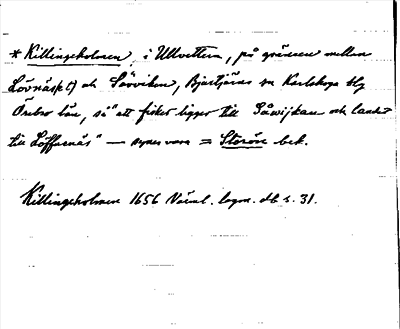 * Killingeholmen, i Ullvettern, på gränsen mellan
Lövnäs(et) och Såviken, Bjurtjärns sn Karlskoga blg
Örebro län, så "att fisket ligger till Såwijkan och landet
till Löffarnäs" — synes vara = Storön bek.
Killingeholmen 1656 Värml. lagm. db s. 31.